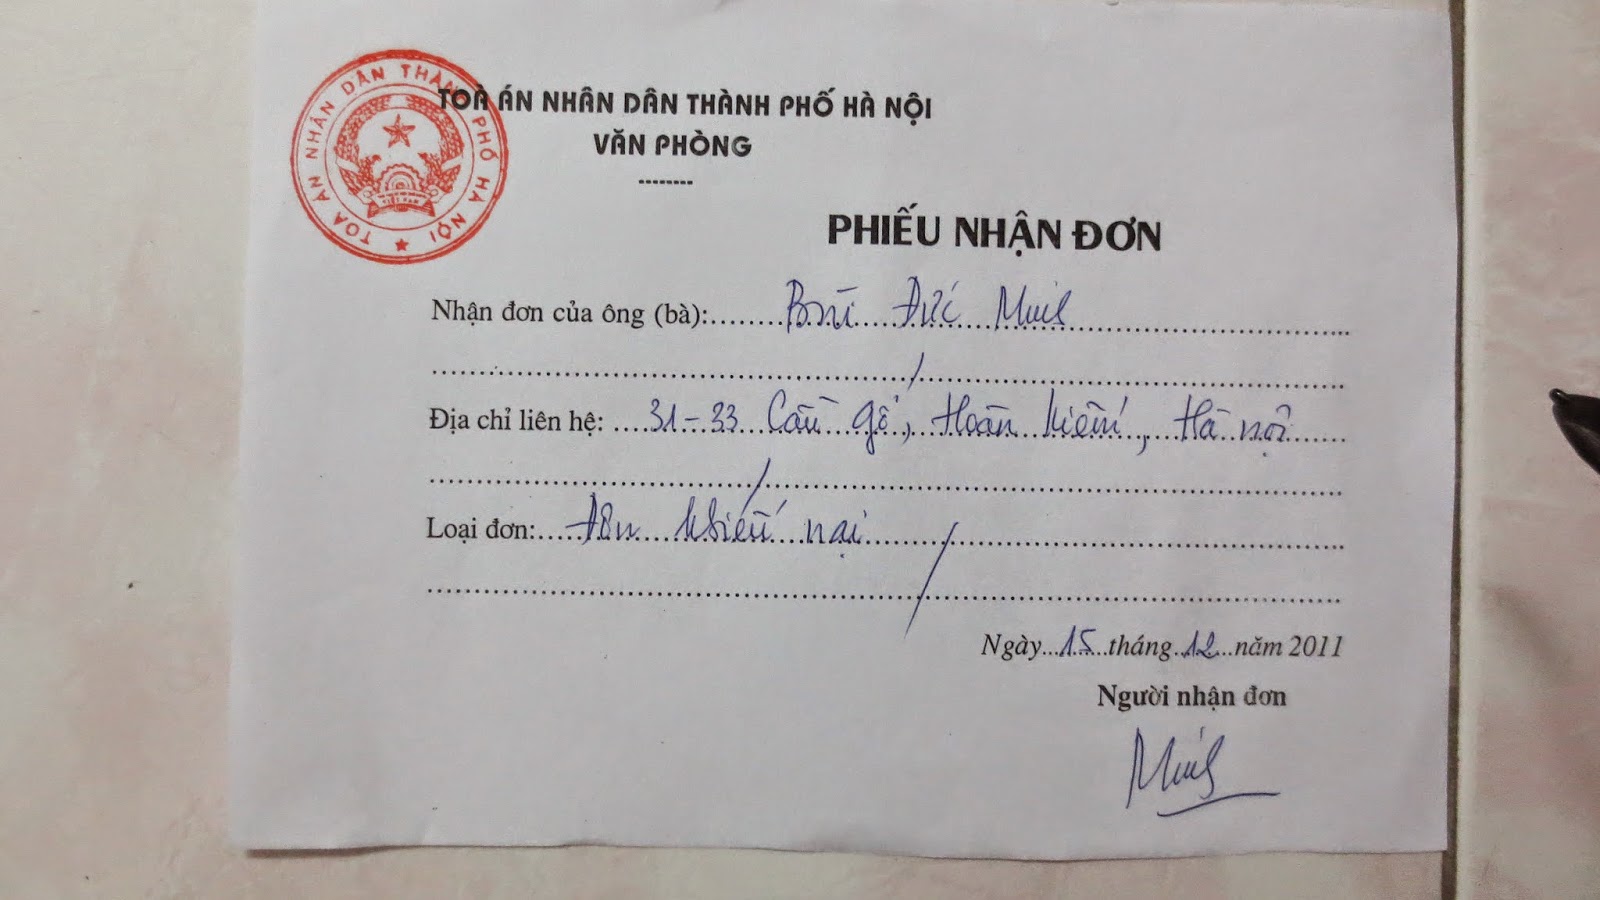 TOÀ ÁN NHÂN DÂN THÀNH PHỐ HÀ NỘI
TOÀ ÁN NHÂN DÂN THÀNH PHỐ HÀ NỘI
VIỆT NAM
VĂN PHÒNG
--------
PHIẾU NHẬN ĐƠN
Nhận đơn của ông (bà):........Bùi Đức Minh........
Địa chỉ liên hệ: ....31-33 Cầu Gỗ, Hoàn Kiếm, Hà Nội......
Loại đơn:.....Đơn khiếu nại........
Ngày...15...tháng...12...năm 2011
Người nhận đơn
Minh